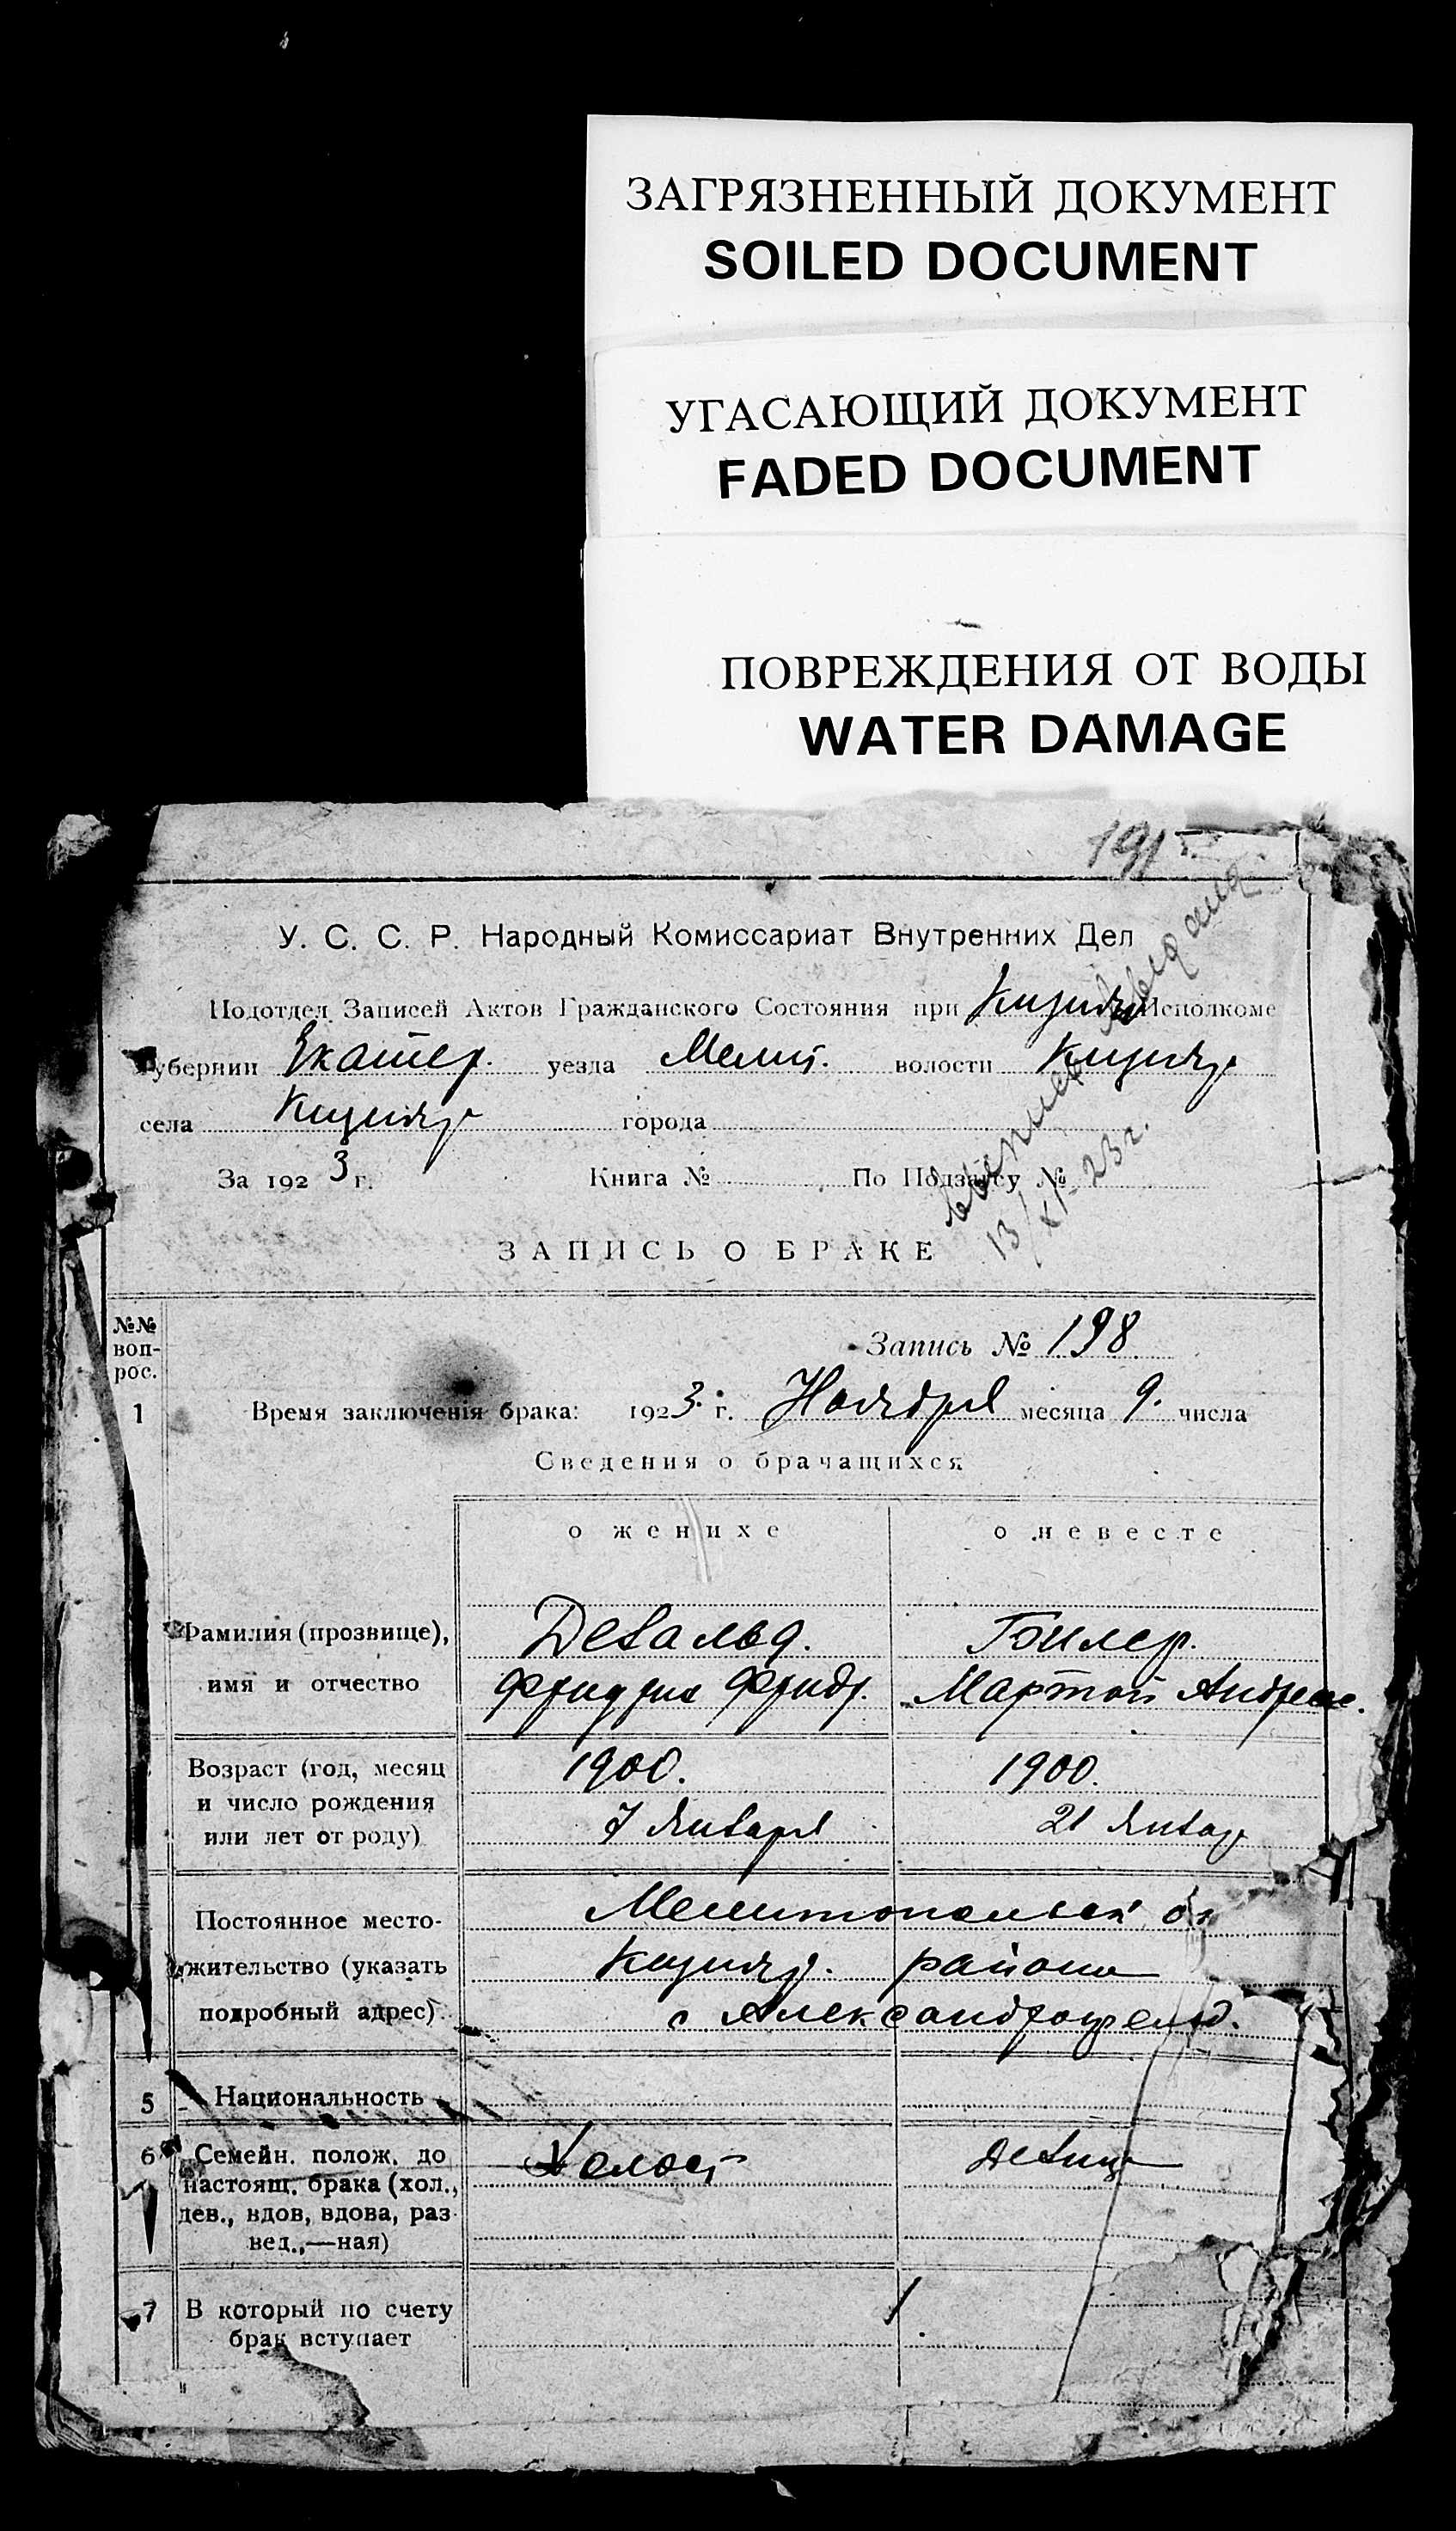 ЗАГРЯЗНЕННЫЙ ДОКУМЕНТ
SOILED DOCUMENT
УГАСАЮЩИЙ ДОКУМЕНТ
FADED DOCUMENT
ПОВРЕЖДЕНИЯ ОТ ВОДЫ
WATER DAMAGE
191
У. С. С. Р. Народный Комиссариат Внутренних Дел
Подотдел Записей Актов Гражданского Состояния при Кизияр Исполкоме
Губернии Екатер. уезда Мелит. волости Кизияр
села Кизияр города
За 1923 г. Книга № По Подзагсу №
13/XI-23 г.
ЗАПИСЬ О БРАКЕ
№№ вопрос.
Запись № 198
1 Время заключенія брака: 1923 г. Ноября месяца 9. числа
Сведения о брачащихся
о женихе о невесте
Фамилия (прозвище), Девальд. Гбилер.
имя и отчество Фридрих Фридр. Мартой Андреас.
Возраст (год, месяц 1900. 1900.
и число рождения
или лет от роду) 7 Января 21 Январ
Постоянное место- Мелитопольск
жительство (указать Кизияр. района
подробный адрес) с Александрофельд.
5 Национальность
6 Семейн. полож. до Холост Девица
настоящ. брака (хол.,
дев., вдов, вдова, раз
вед.,—ная)
7 В который по счету 1
брак вступает